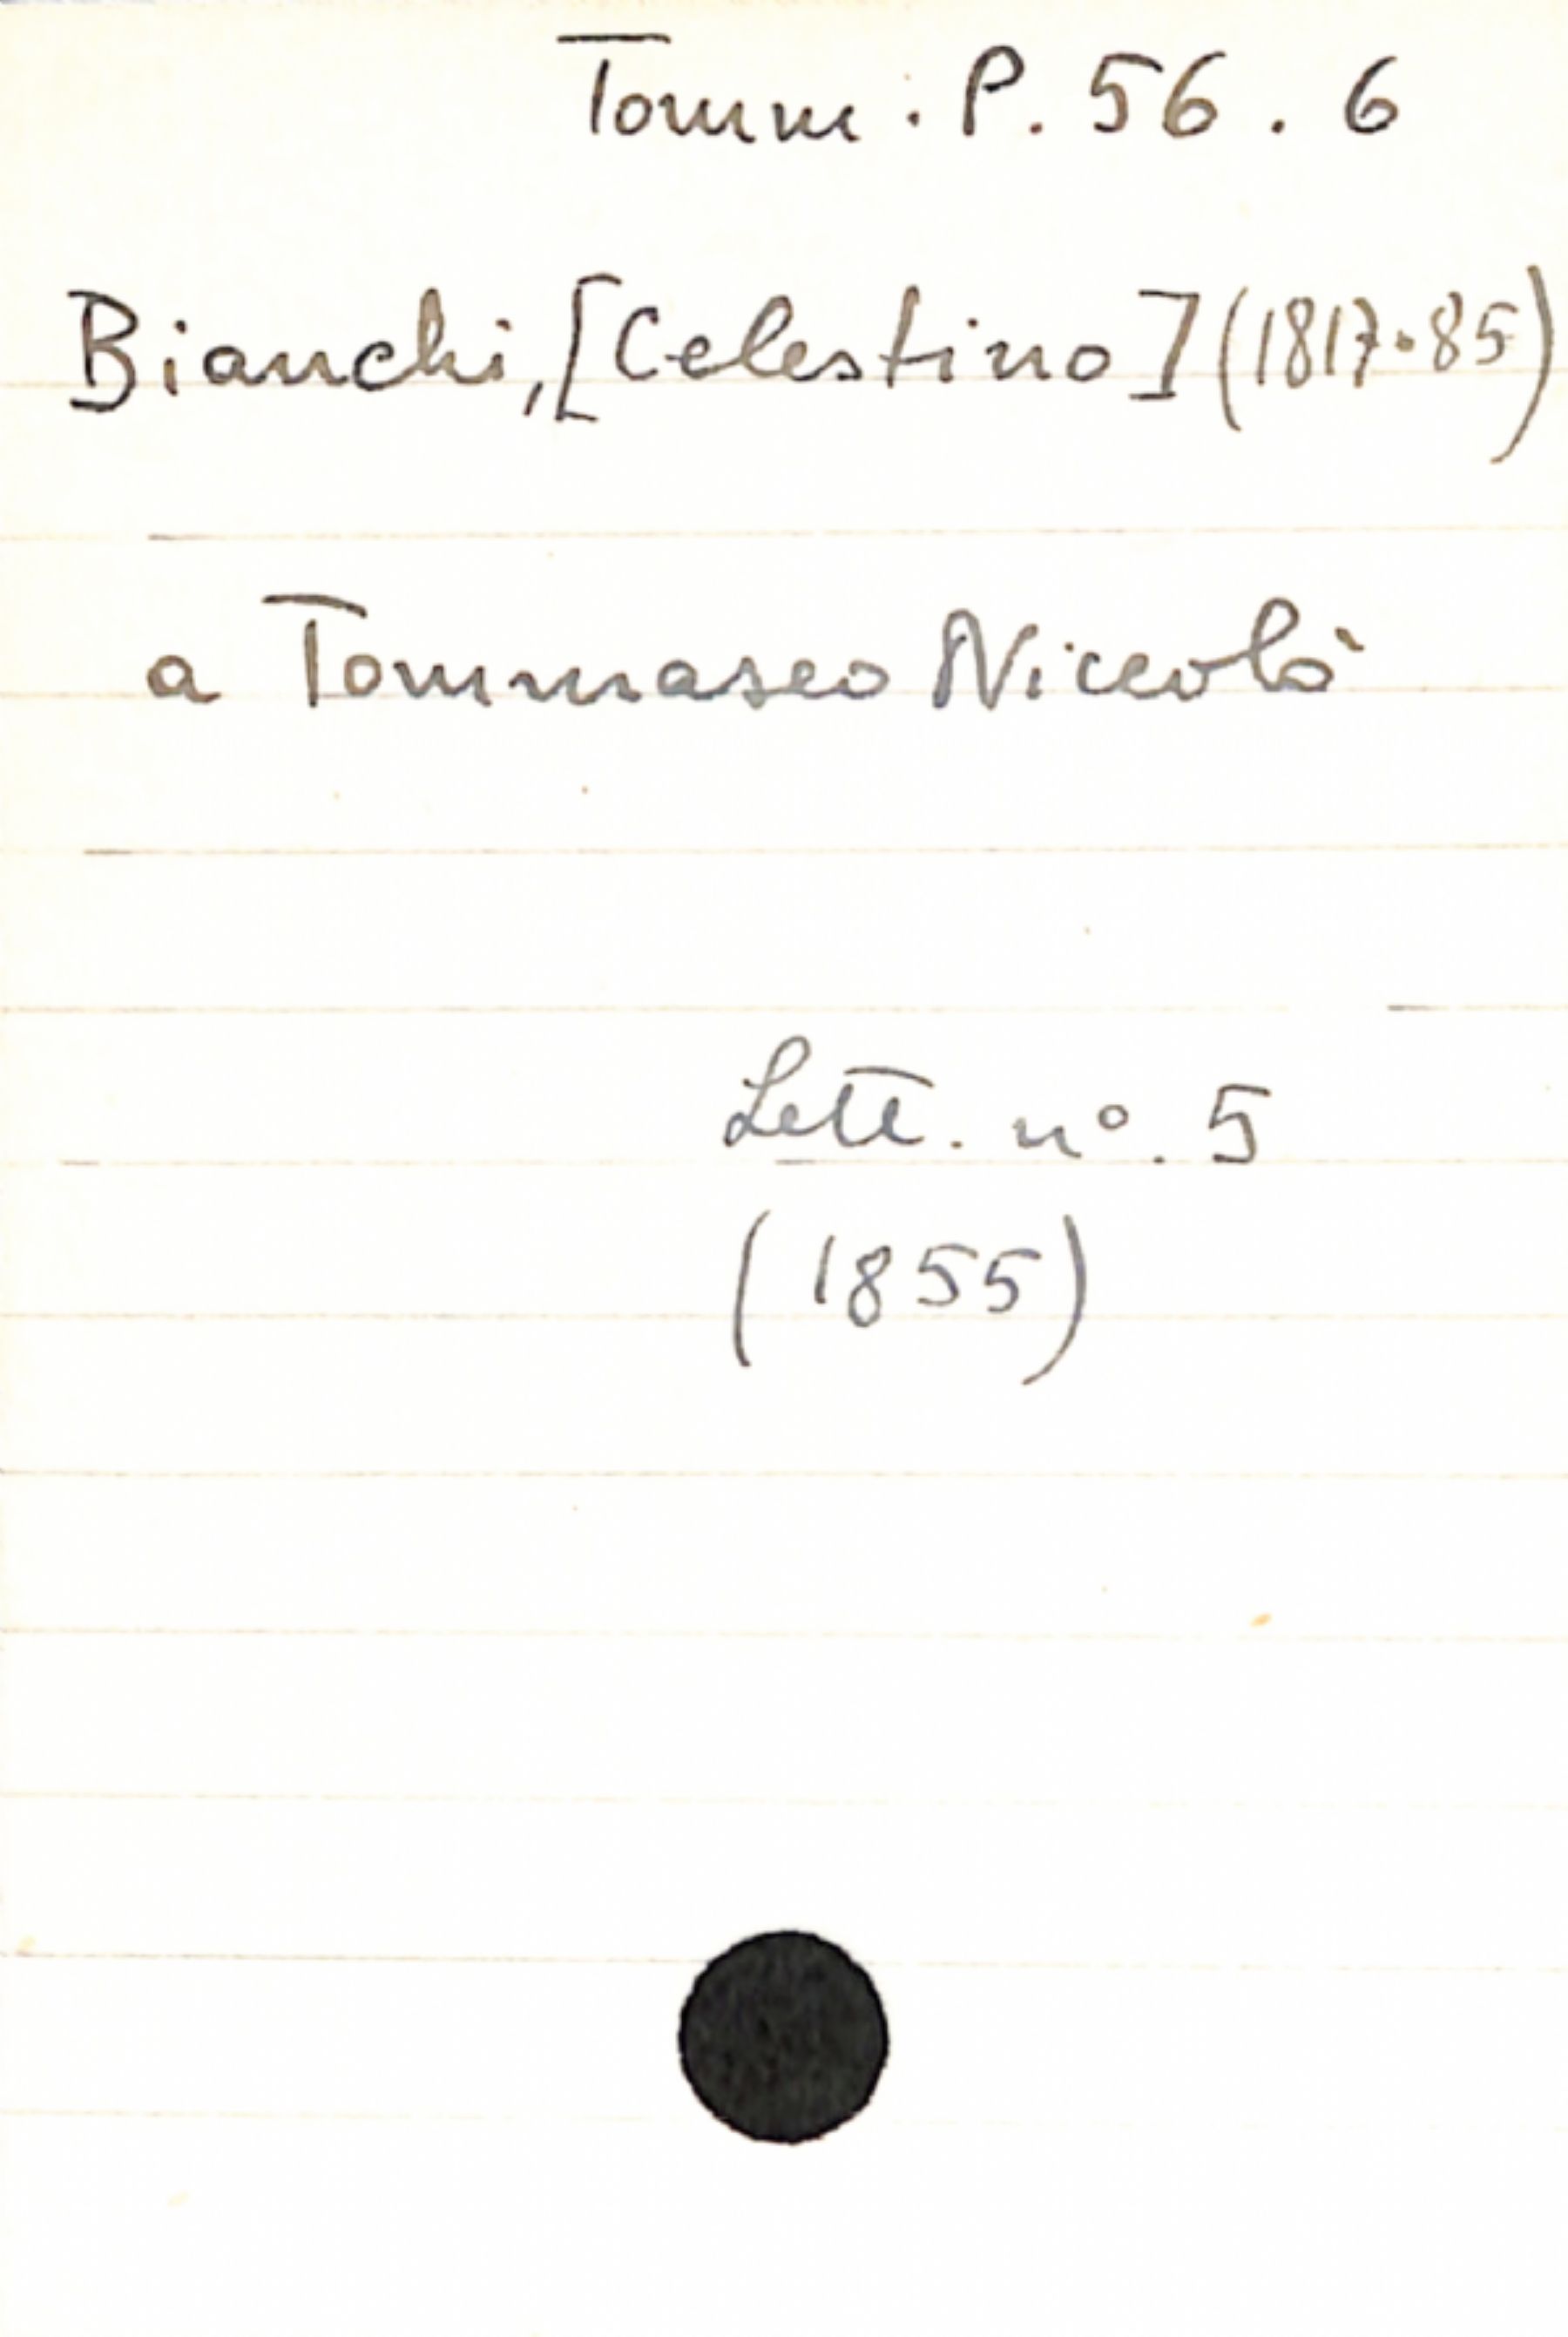 Tomm. P. 56. 6
Bianchi, [Celestino] (1817-85)
a Tommaseo Niccolò
Lett. nº. 5
(1855)